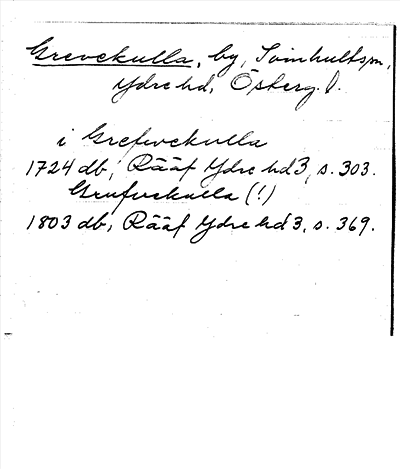 Grevekulla, by, Svinhultspn,
Ydre hd, Österg. l.
i Grefvekulla
1724 db, Rääf Ydre hd 3, s. 303.
Grufvekulla (!)
1803 db, Rääf Ydre hd 3, s. 369.